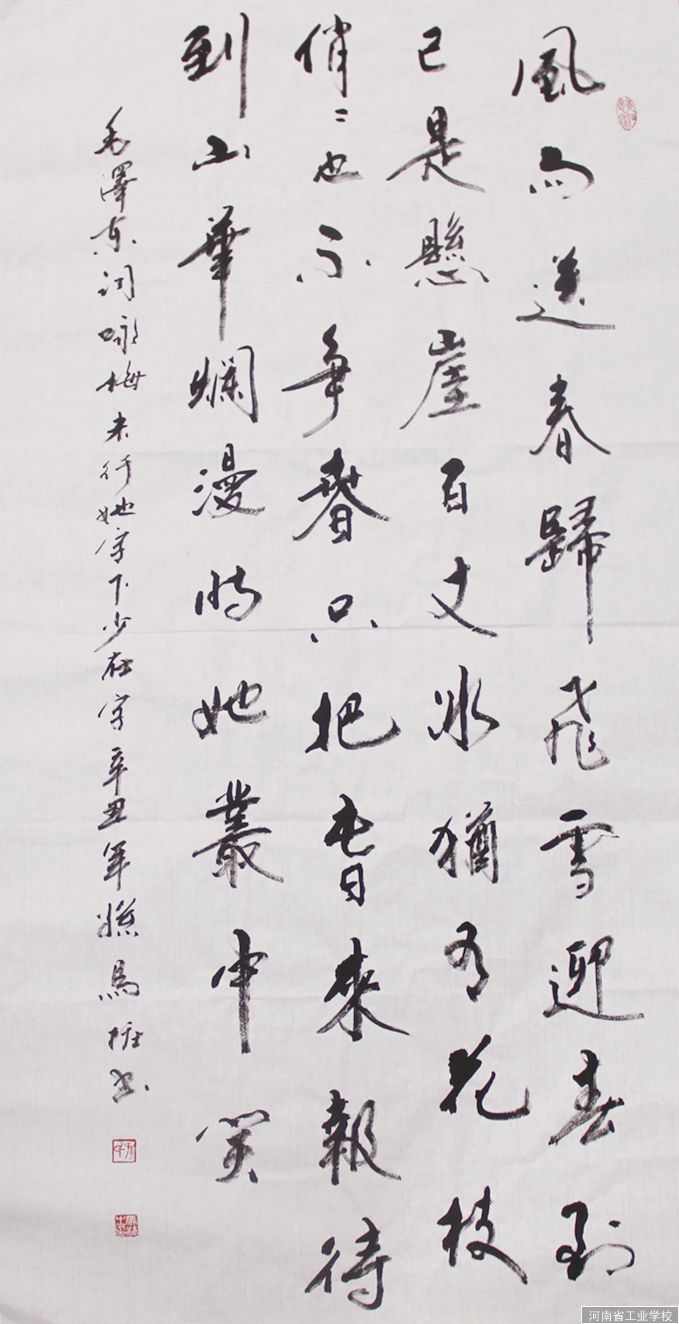 風雨送春歸飛雪迎春到
已是懸崖百丈冰猶有花枝
俏〻也不争春只把春来報待
到山華爛漫时她叢中笑
毛澤东词咏梅末行她字下少在字辛丑年 馬 书
河南省工业学校